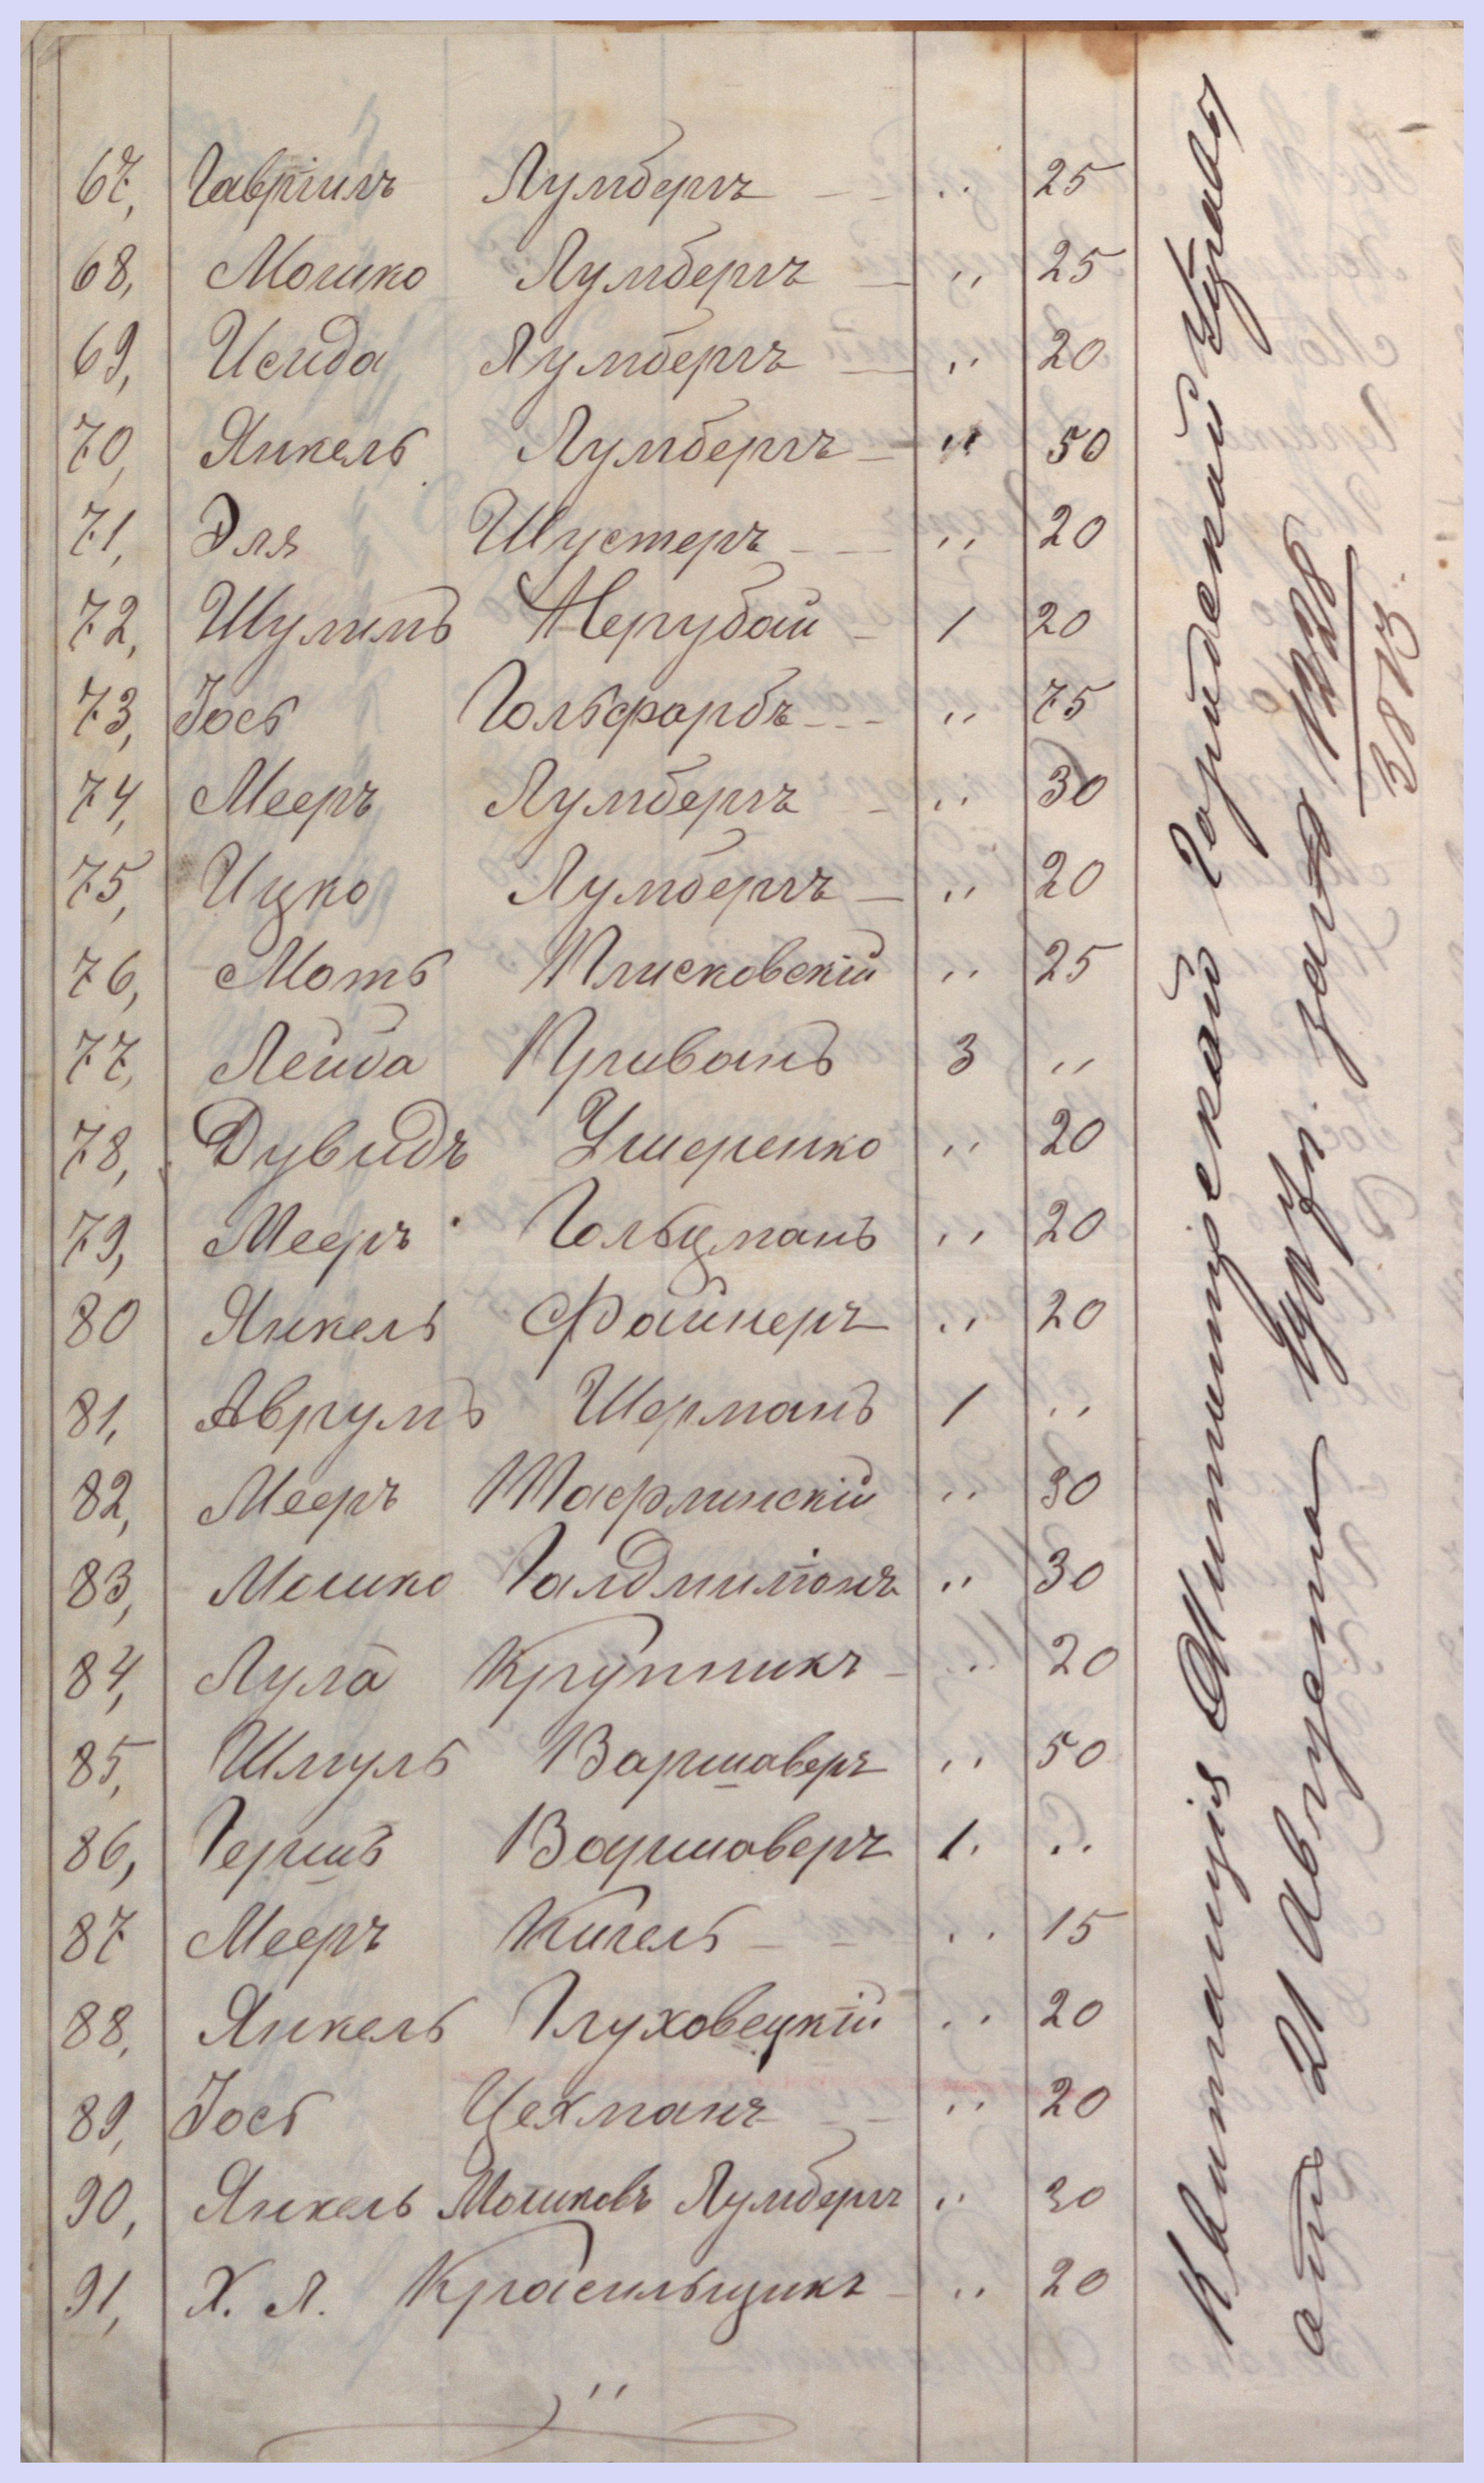 67, Гавріилъ Лумбергъ — — „ 25
68, Мошко Лумбергъ — „ 25
69, Исида Лумбергъ — „ 20
70, Янкель Лумбергъ — „ 50
71, Эля Шустеръ — — „ 20
72, Шулимъ Нерубай — 1 20
73, Іось Гольфарбъ — — „ 75
74, Мееръ Лумбергъ — „ 30
75, Ицко Лумбергъ — „ 20
76, Моть Плисковскій „ 25
77, Лейба Кривонъ 3 „
78, Дувидъ Ушеренко „ 20
79, Мееръ Гольцманъ „ 20
80 Янкель Файнеръ „ 20
81, Аврумъ Шерманъ 1 „
82, Мееръ „ 30
83, Мошко „ 30
84, Лула Крупникъ — „ 20
85, Шмуль Варшаверъ „ 50
86, Гершъ Варшаверъ 1. „
87 Мееръ Кигель — — „ 15
88, Янкель Глуховецкій „ 20
89, Іось Цехманъ — — „ 20
90, Янкель Мошковъ Лумбергъ „ 30
91, Х. Л. Красильщикъ — „ 20
„
Квитанція Липинецкой Городской Управы
отъ 21 Августа за № 1228
3813.